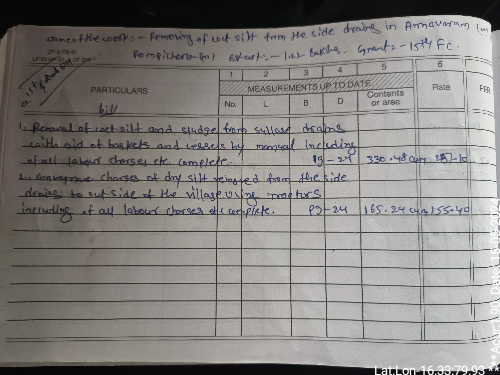 Name of the work:- Removing of wet silt from the side drains in Annavaram (v)
Pompicherla (m) Est cost:- 1.22 Lakhs. Grant:- 15th FC.
1 2 3 4 5 6
PARTICULARS MEASUREMENTS UP TO DATE Rate PER
No. L B D Contents or area
bill
1. Removal of wet silt and sludge from sullage drains
with aid of baskets and vessels by manual including
of all labour charges etc complete. Pg-24 330.48 cum
2. conveyance charges of dry silt removed from the side
drains to out side of the village using tractors
including of all labour charges etc complete. Pg-24 165.24 cum 155.40
Lat,Lon 16.33;79.93